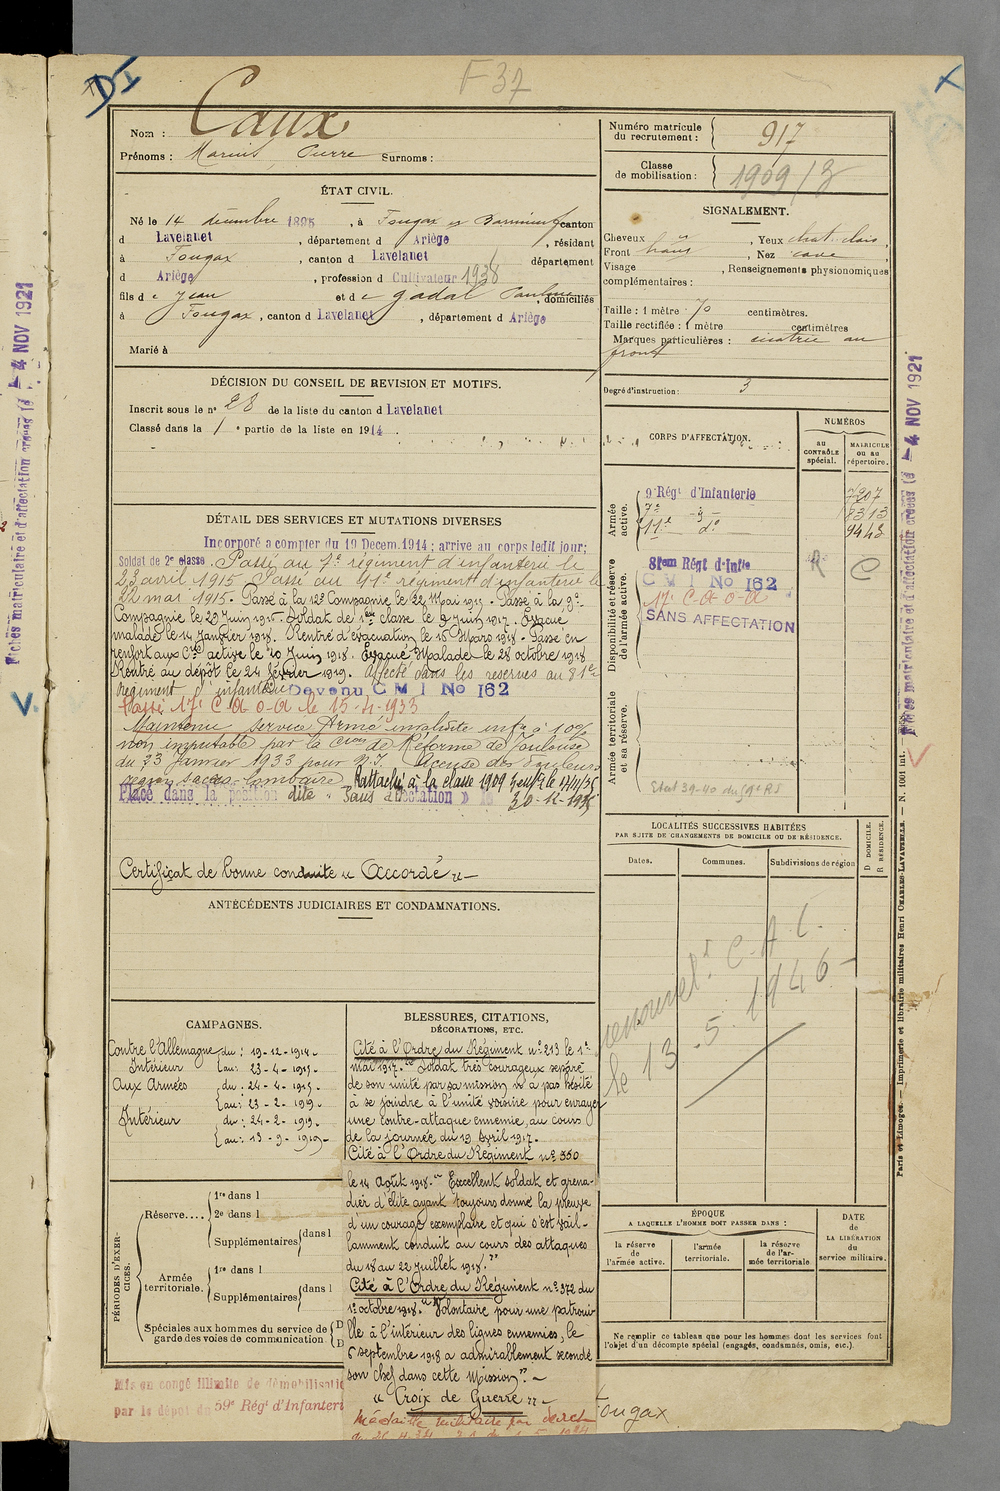 DI
F 37
Nom : Caux
Prénoms : Marius, Pierre Surnoms :
Numéro matricule du recrutement : 917
Classe de mobilisation : 1909/3
ÉTAT CIVIL.
Né le 14 décembre 1895, à Fougax et Barrineuf canton
d Lavelanet, département d Ariège, résidant
à Fougax, canton d Lavelanet département
d Ariège, profession d Cultivateur 1938
fils de Jean et de Gadal Pauline, domiciliés
à Fougax, canton d Lavelanet, département d Ariège
Marié à
SIGNALEMENT.
Cheveux, Yeux chat. clairs,
Front haut, Nez cave
Visage, Renseignements physionomiques
complémentaires :
Taille : 1 mètre 70 centimètres.
Taille rectifiée : 1 mètre centimètres
Marques particulières : cicatrice au
front
Degré d'instruction : 3
DÉCISION DU CONSEIL DE REVISION ET MOTIFS.
Inscrit sous le n° 28 de la liste du canton d Lavelanet
Classé dans la 1e partie de la liste en 1914
CORPS D'AFFECTATION.
NUMÉROS
au CONTRÔLE spécial.
MATRICULE ou au répertoire.
Armée active.
9e Régt d'Infanterie 7207
7e -d- 8313
11e do 9448
Disponibilité et réserve de l'armée active.
81em Régt d'Infie
C M I No 162
17e C-O-A
SANS AFFECTATION
R
C
Armée territoriale et sa réserve.
Etat 39-40 du 59e RI
DÉTAIL DES SERVICES ET MUTATIONS DIVERSES
Incorporé a compter du 19 Decem.1914 ; arrive au corps ledit jour;
Soldat de 2e classe. Passé au 7e régiment d'infanterie le
23 avril 1915 Passé au 91e régiment d'infanterie le
22 mai 1915. Passé à la 12e Compagnie le 22 Mai 1915. Passé à la 9e
Compagnie le 29 Juin 1915. Soldat de 1ère classe le 9 Juin 1917. Evacué
malade le 14 Janvier 1918. Rentré d'évacuation le 15 Mars 1918. Passé en
renfort aux Cies active le 10 Juin 1918. Evacué Malade le 28 octobre 1918
Rentré au dépôt le 24 février 1919. Affecté dans les reserves au 81e
régiment d'infanterie Devenu C M I No 162
Passé 17e C-O-A le 15-4-933
Maintenu service Armé invalidité infre à 10%
non imputable par la Cion de Réforme de Toulouse
du 23 Janvier 1933 pour N.I. Accuse des douleurs
région sacro-lombaire. Rattaché à la classe 1909
Placé dans la position dite « Sans affectation »
Certificat de bonne conduite « Accordé »
ANTÉCÉDENTS JUDICIAIRES ET CONDAMNATIONS.
LOCALITÉS SUCCESSIVES HABITÉES
PAR SUITE DE CHANGEMENTS DE DOMICILE OU DE RÉSIDENCE.
Dates.
Communes.
Subdivisions de région
D DOMICILE.
R RÉSIDENCE.
renouvelt C.A.C.
le 13 - 5. 1946 -
CAMPAGNES.
Contre l'Allemagne du : 19-12-1914.
Intérieur au : 23-4-1915.
Aux Armées du : 24-4-1915.
au : 23-2-1919.
Intérieur du : 24-2-1919.
au : 13-9-1919.
BLESSURES, CITATIONS,
DÉCORATIONS, ETC.
Cité à l'Ordre du Régiment n° 213 le 1er
mai 1917. "Soldat très courageux séparé
de son unité par sa mission n'a pas hésité
à se joindre à l'unité voisine pour enrayer
une contre-attaque ennemie, au cours
de la journée du 19 Avril 1917.
Cité à l'Ordre du Régiment n° 350
le 14 Août 1918. "Excellent soldat et grena-
dier d'élite ayant toujours donné la preuve
d'un courage exemplaire et qui s'est vail-
lamment conduit au cours des attaques
du 18 au 22 juillet 1918."
Cité à l'Ordre du Régiment n° 372 du
1er octobre 1918. "Volontaire pour une patroui-
lle à l'intérieur des lignes ennemies, le
6 septembre 1918 a admirablement secondé
son chef dans cette Mission".
"Croix de Guerre"
Médaille militaire par décret
PÉRIODES D'EXERCICES.
Réserve....
1re dans l
2e dans l
Supplémentaires dans l
Armée territoriale.
1re dans l
Supplémentaires dans l
Spéciales aux hommes du service de
garde des voies de communication
D
D
ÉPOQUE
A LAQUELLE L'HOMME DOIT PASSER DANS :
la réserve de l'armée active.
l'armée territoriale.
la réserve de l'armée territoriale.
DATE DE LA LIBÉRATION du service militaire.
Ne remplir ce tableau que pour les hommes dont les services font
l'objet d'un décompte spécial (engagés, condamnés, omis, etc.).
Mis en congé illimité de démobilisatio
par le dépôt du 59e Régt d'Infanteri
Fougax
Fiches matriculaire et d'affectation créées le - 4 NOV 1921
V.
Fiches matriculaire et d'affectation créées le - 4 NOV 1921
Paris et Limoges. — Imprimerie et librairie militaires Henri CHARLES-LAVAUZELLE. — N. 1001 int.